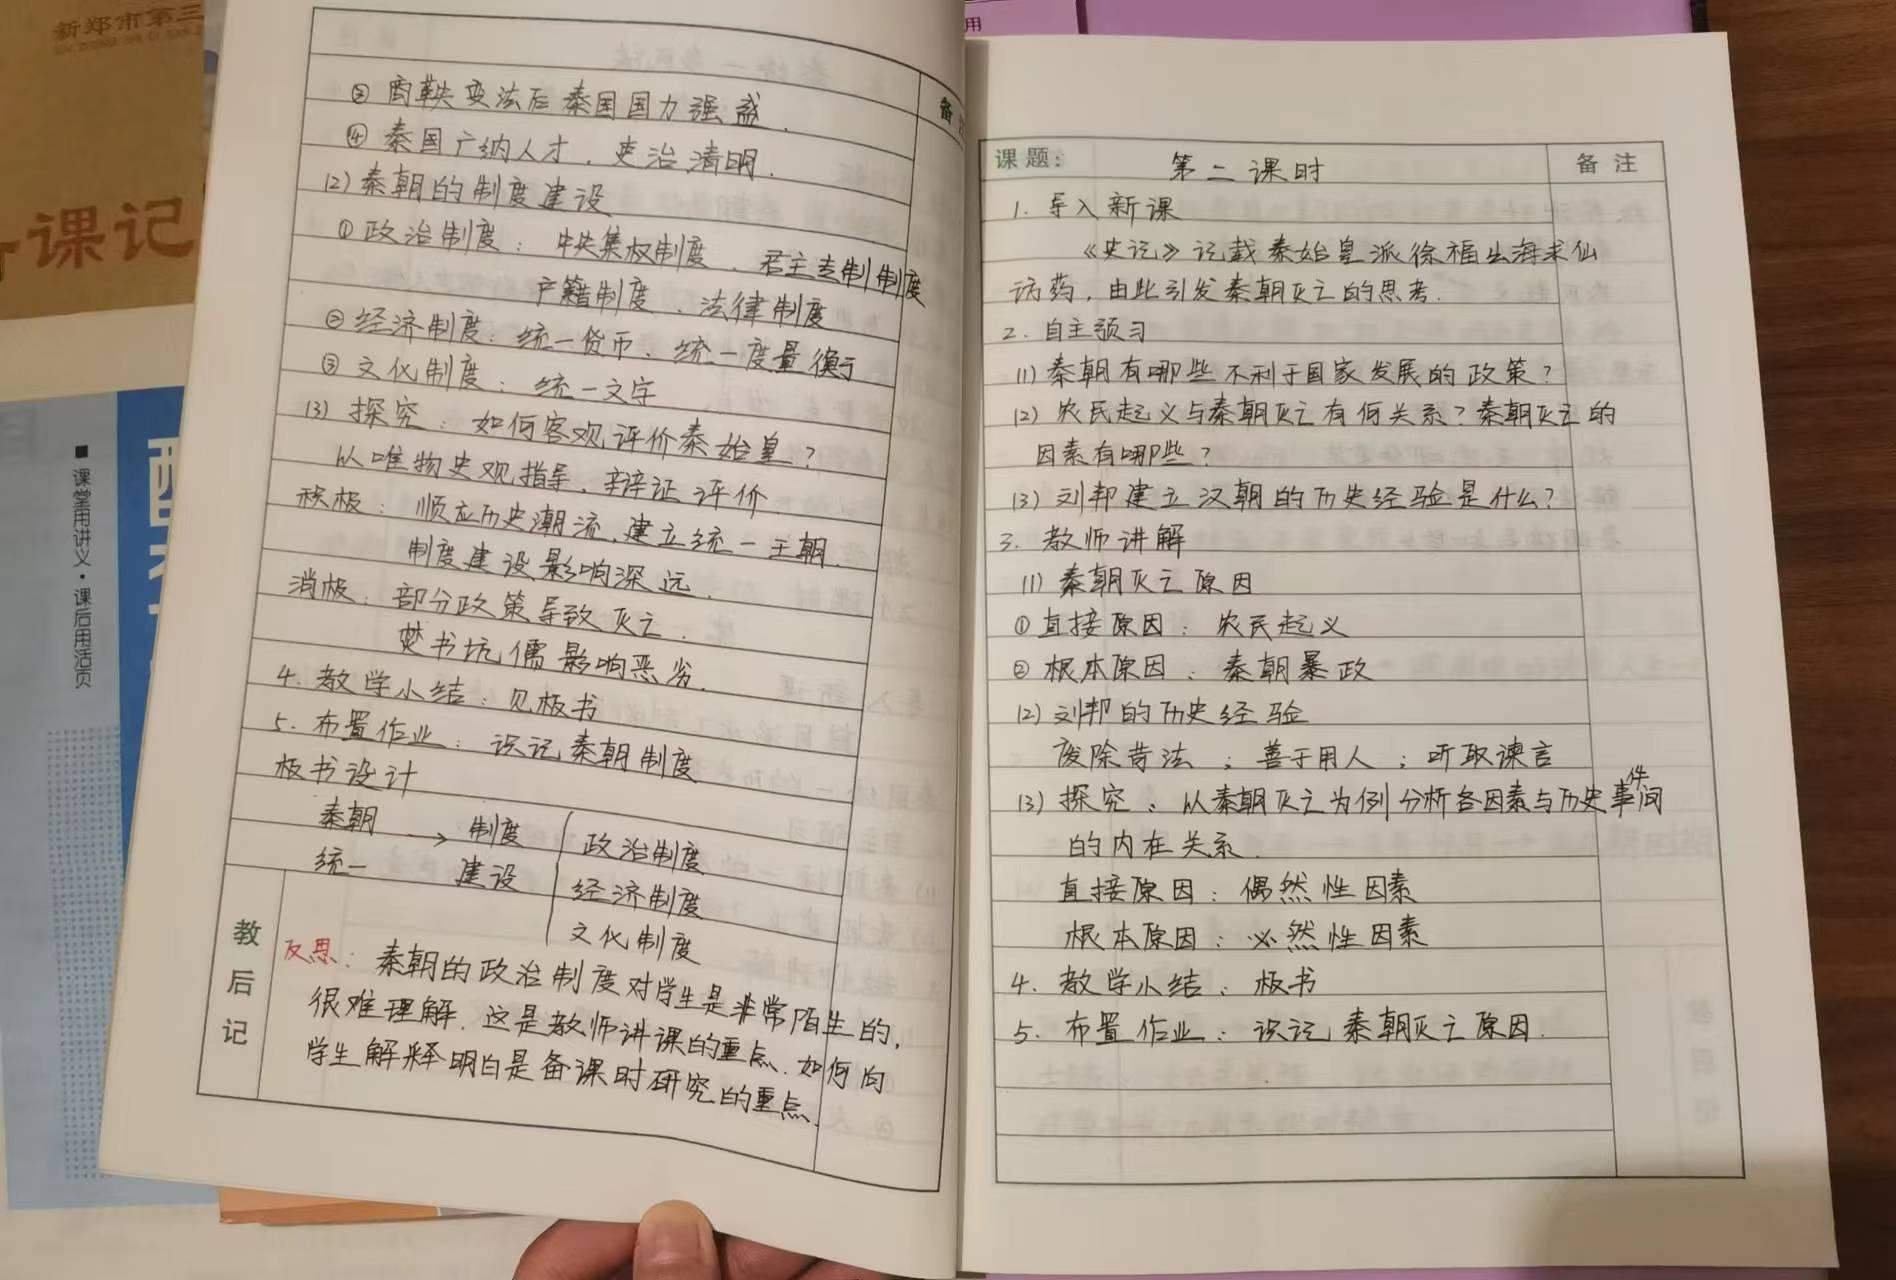 新郑市第三
课记
■ 课堂用讲义·课后用活页
用
备注
③ 商鞅变法后秦国国力强盛.
④ 秦国广纳人才，吏治清明.
(2) 秦朝的制度建设
① 政治制度：中央集权制度、君主专制制度
户籍制度、法律制度
② 经济制度：统一货币、统一度量衡
③ 文化制度：统一文字
(3) 探究：如何客观评价秦始皇？
从唯物史观指导，辩证评价
积极：顺应历史潮流，建立统一王朝.
制度建设影响深远.
消极：部分政策导致灭亡.
焚书坑儒影响恶劣.
4. 教学小结：见板书
5. 布置作业：识记秦朝制度
板书设计
秦朝 → 制度 政治制度
统一 建设 经济制度
文化制度
教后记
反思：秦朝的政治制度对学生是非常陌生的，
很难理解，这是教师讲课的重点，如何向
学生解释明白是备课时研究的重点.
课题： 第二课时 备注
1. 导入新课
《史记》记载秦始皇派徐福出海求仙
药，由此引发秦朝灭亡的思考.
2. 自主预习
(1) 秦朝有哪些不利于国家发展的政策？
(2) 农民起义与秦朝灭亡有何关系？秦朝灭亡的
因素有哪些？
(3) 刘邦建立汉朝的历史经验是什么？
3. 教师讲解
(1) 秦朝灭亡原因
① 直接原因：农民起义
② 根本原因：秦朝暴政
(2) 刘邦的历史经验
废除苛法；善于用人；听取谏言
(3) 探究：从秦朝灭亡为例分析各因素与历史事件间
的内在关系.
直接原因：偶然性因素
根本原因：必然性因素
4. 教学小结：板书
5. 布置作业：识记秦朝灭亡原因.